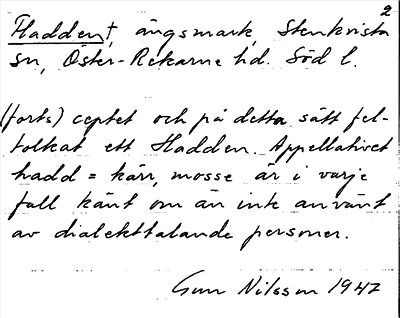 2
Hadden†, ängsmark, Stenkvista
sn, Öster-Rekarne hd. Söd l.
(forts) ceptet och på detta sätt fel-
tolkat ett Hadden. Appellativet
hadd = kärr, mosse är i varje
fall känt om än inte använt
av dialekttalande personer.
Gun Nilsson 1947